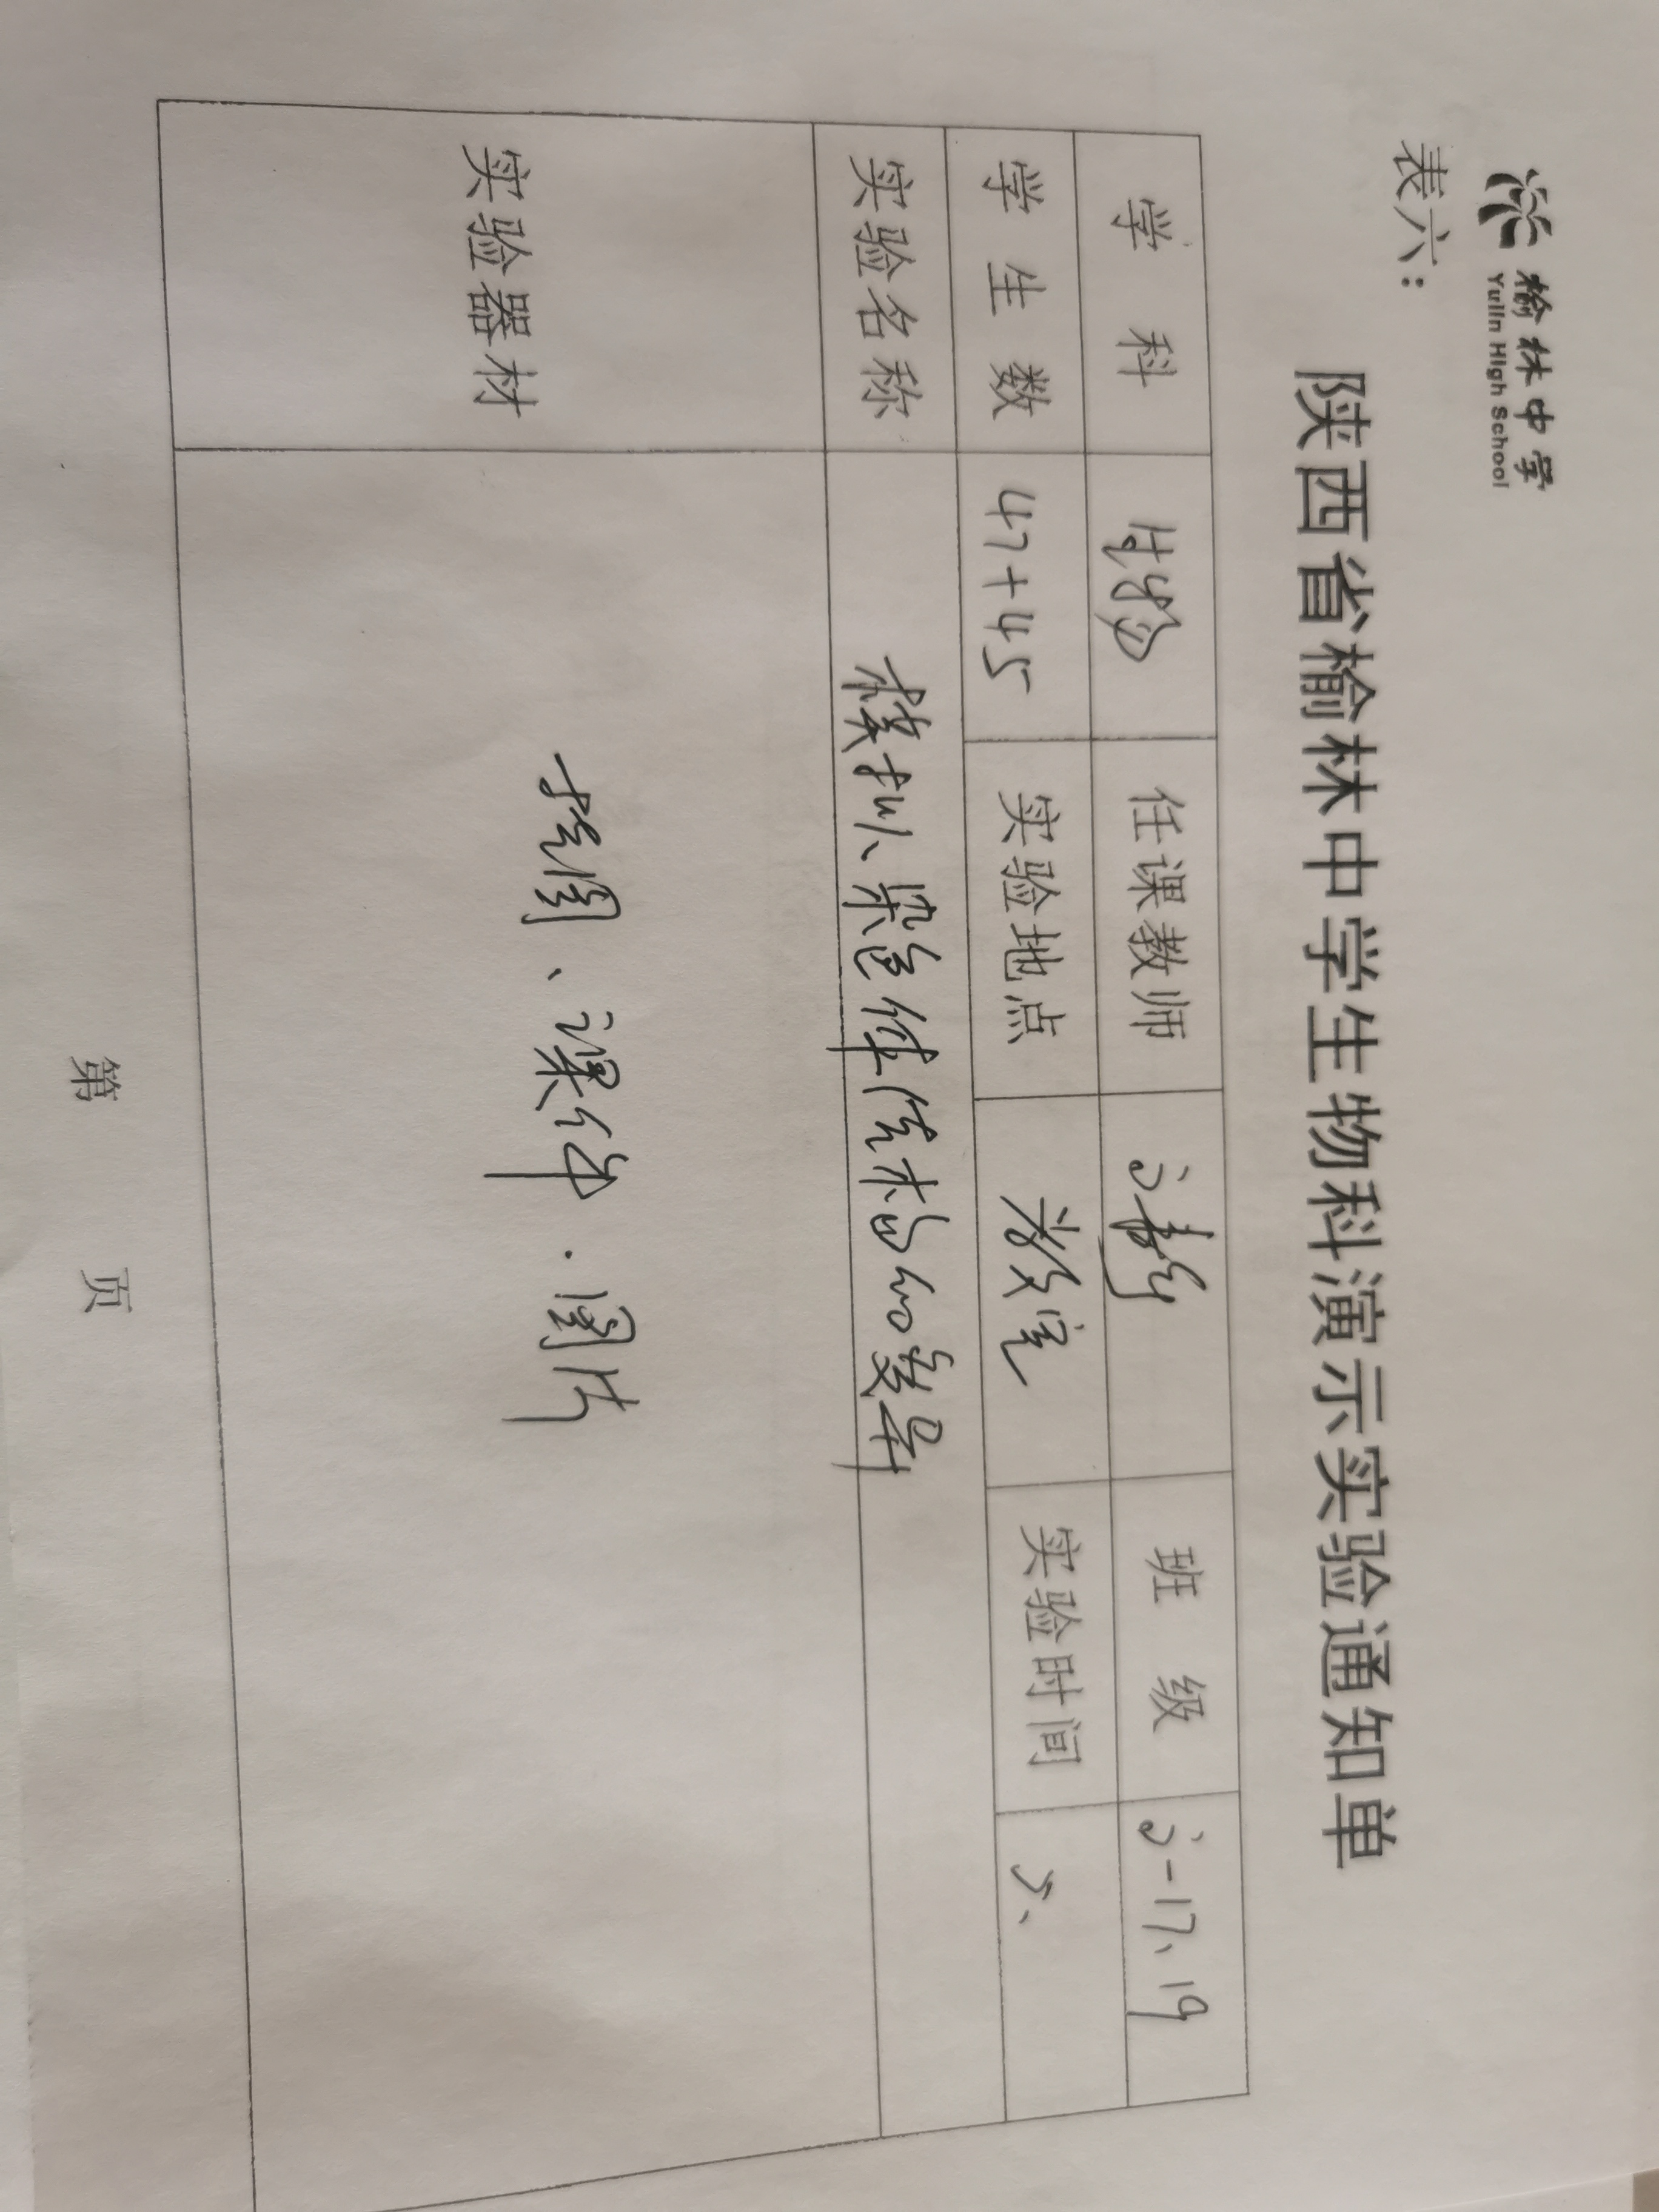 榆林中学
Yulin High School
表六：
陕西省榆林中学生物科演示实验通知单
学 科 生物 任课教师 班 级 17、19
学 生 数 47+45 实验地点 教室 实验时间 5、
实验名称 模拟染色体结构的变异
实验器材 挂图、课件·图片
第 页